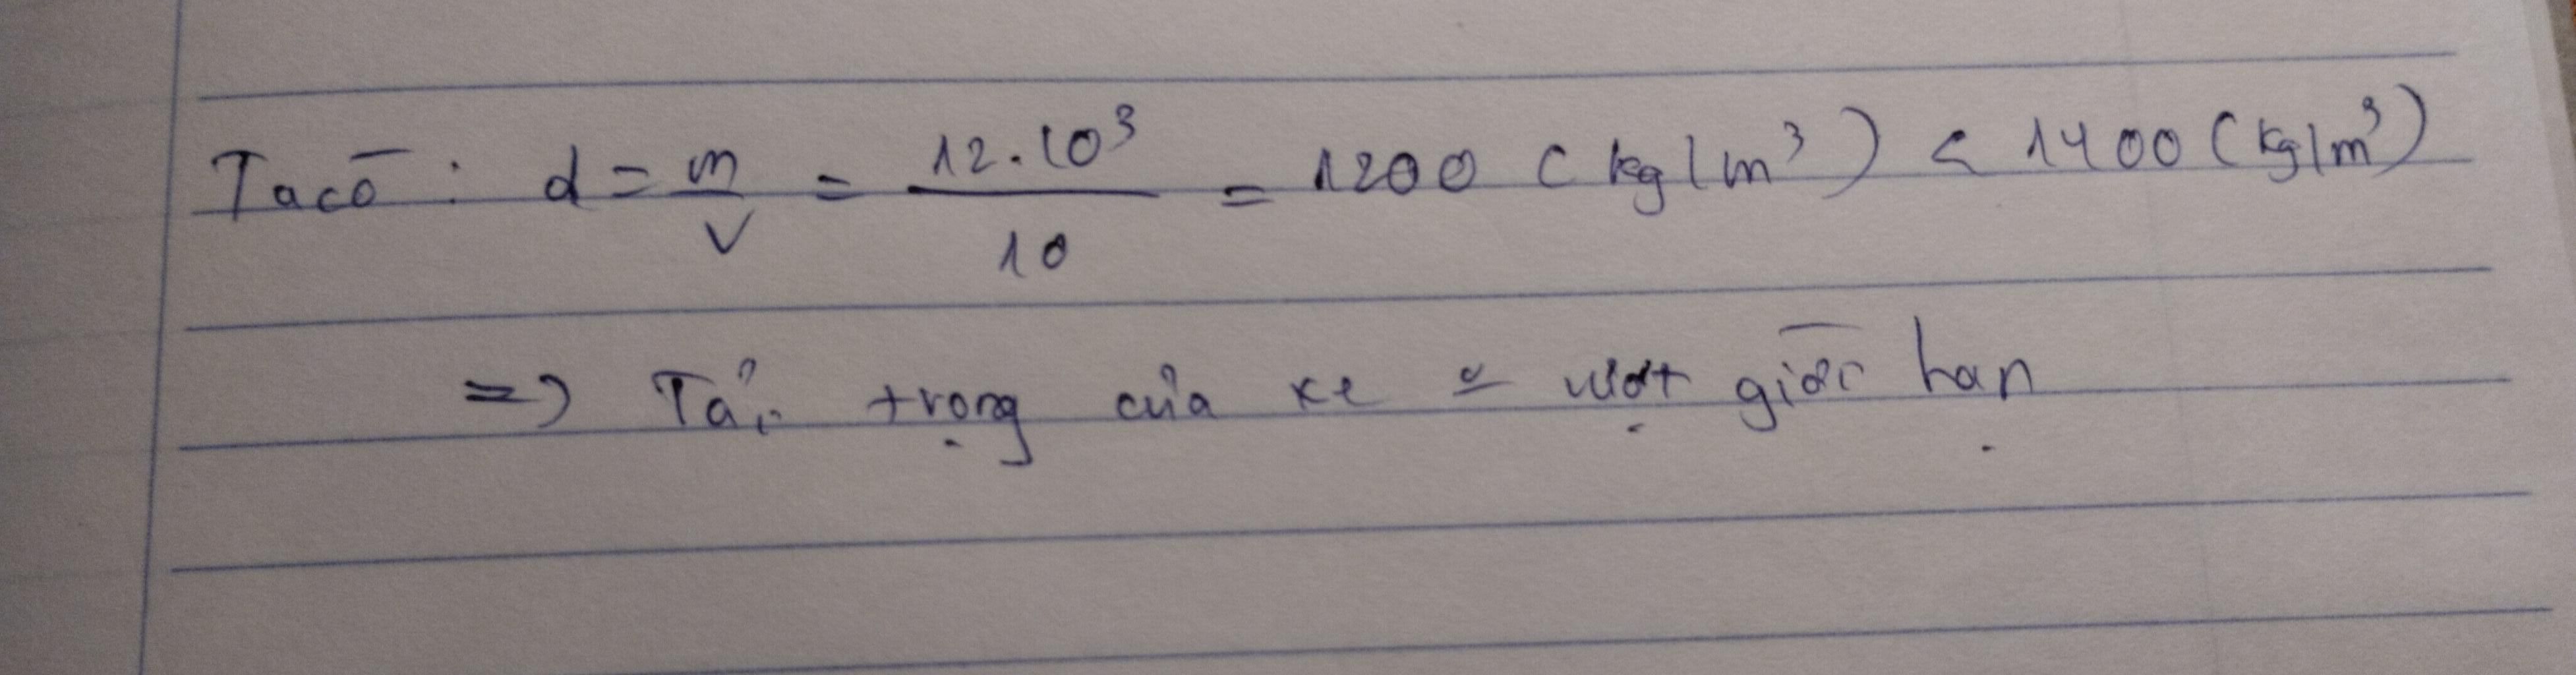 Ta có : d = m/V = 12.10³/10 = 1200 (kg/m³) < 1400 (kg/m³)
=> Tải trọng của xe vượt giới hạn